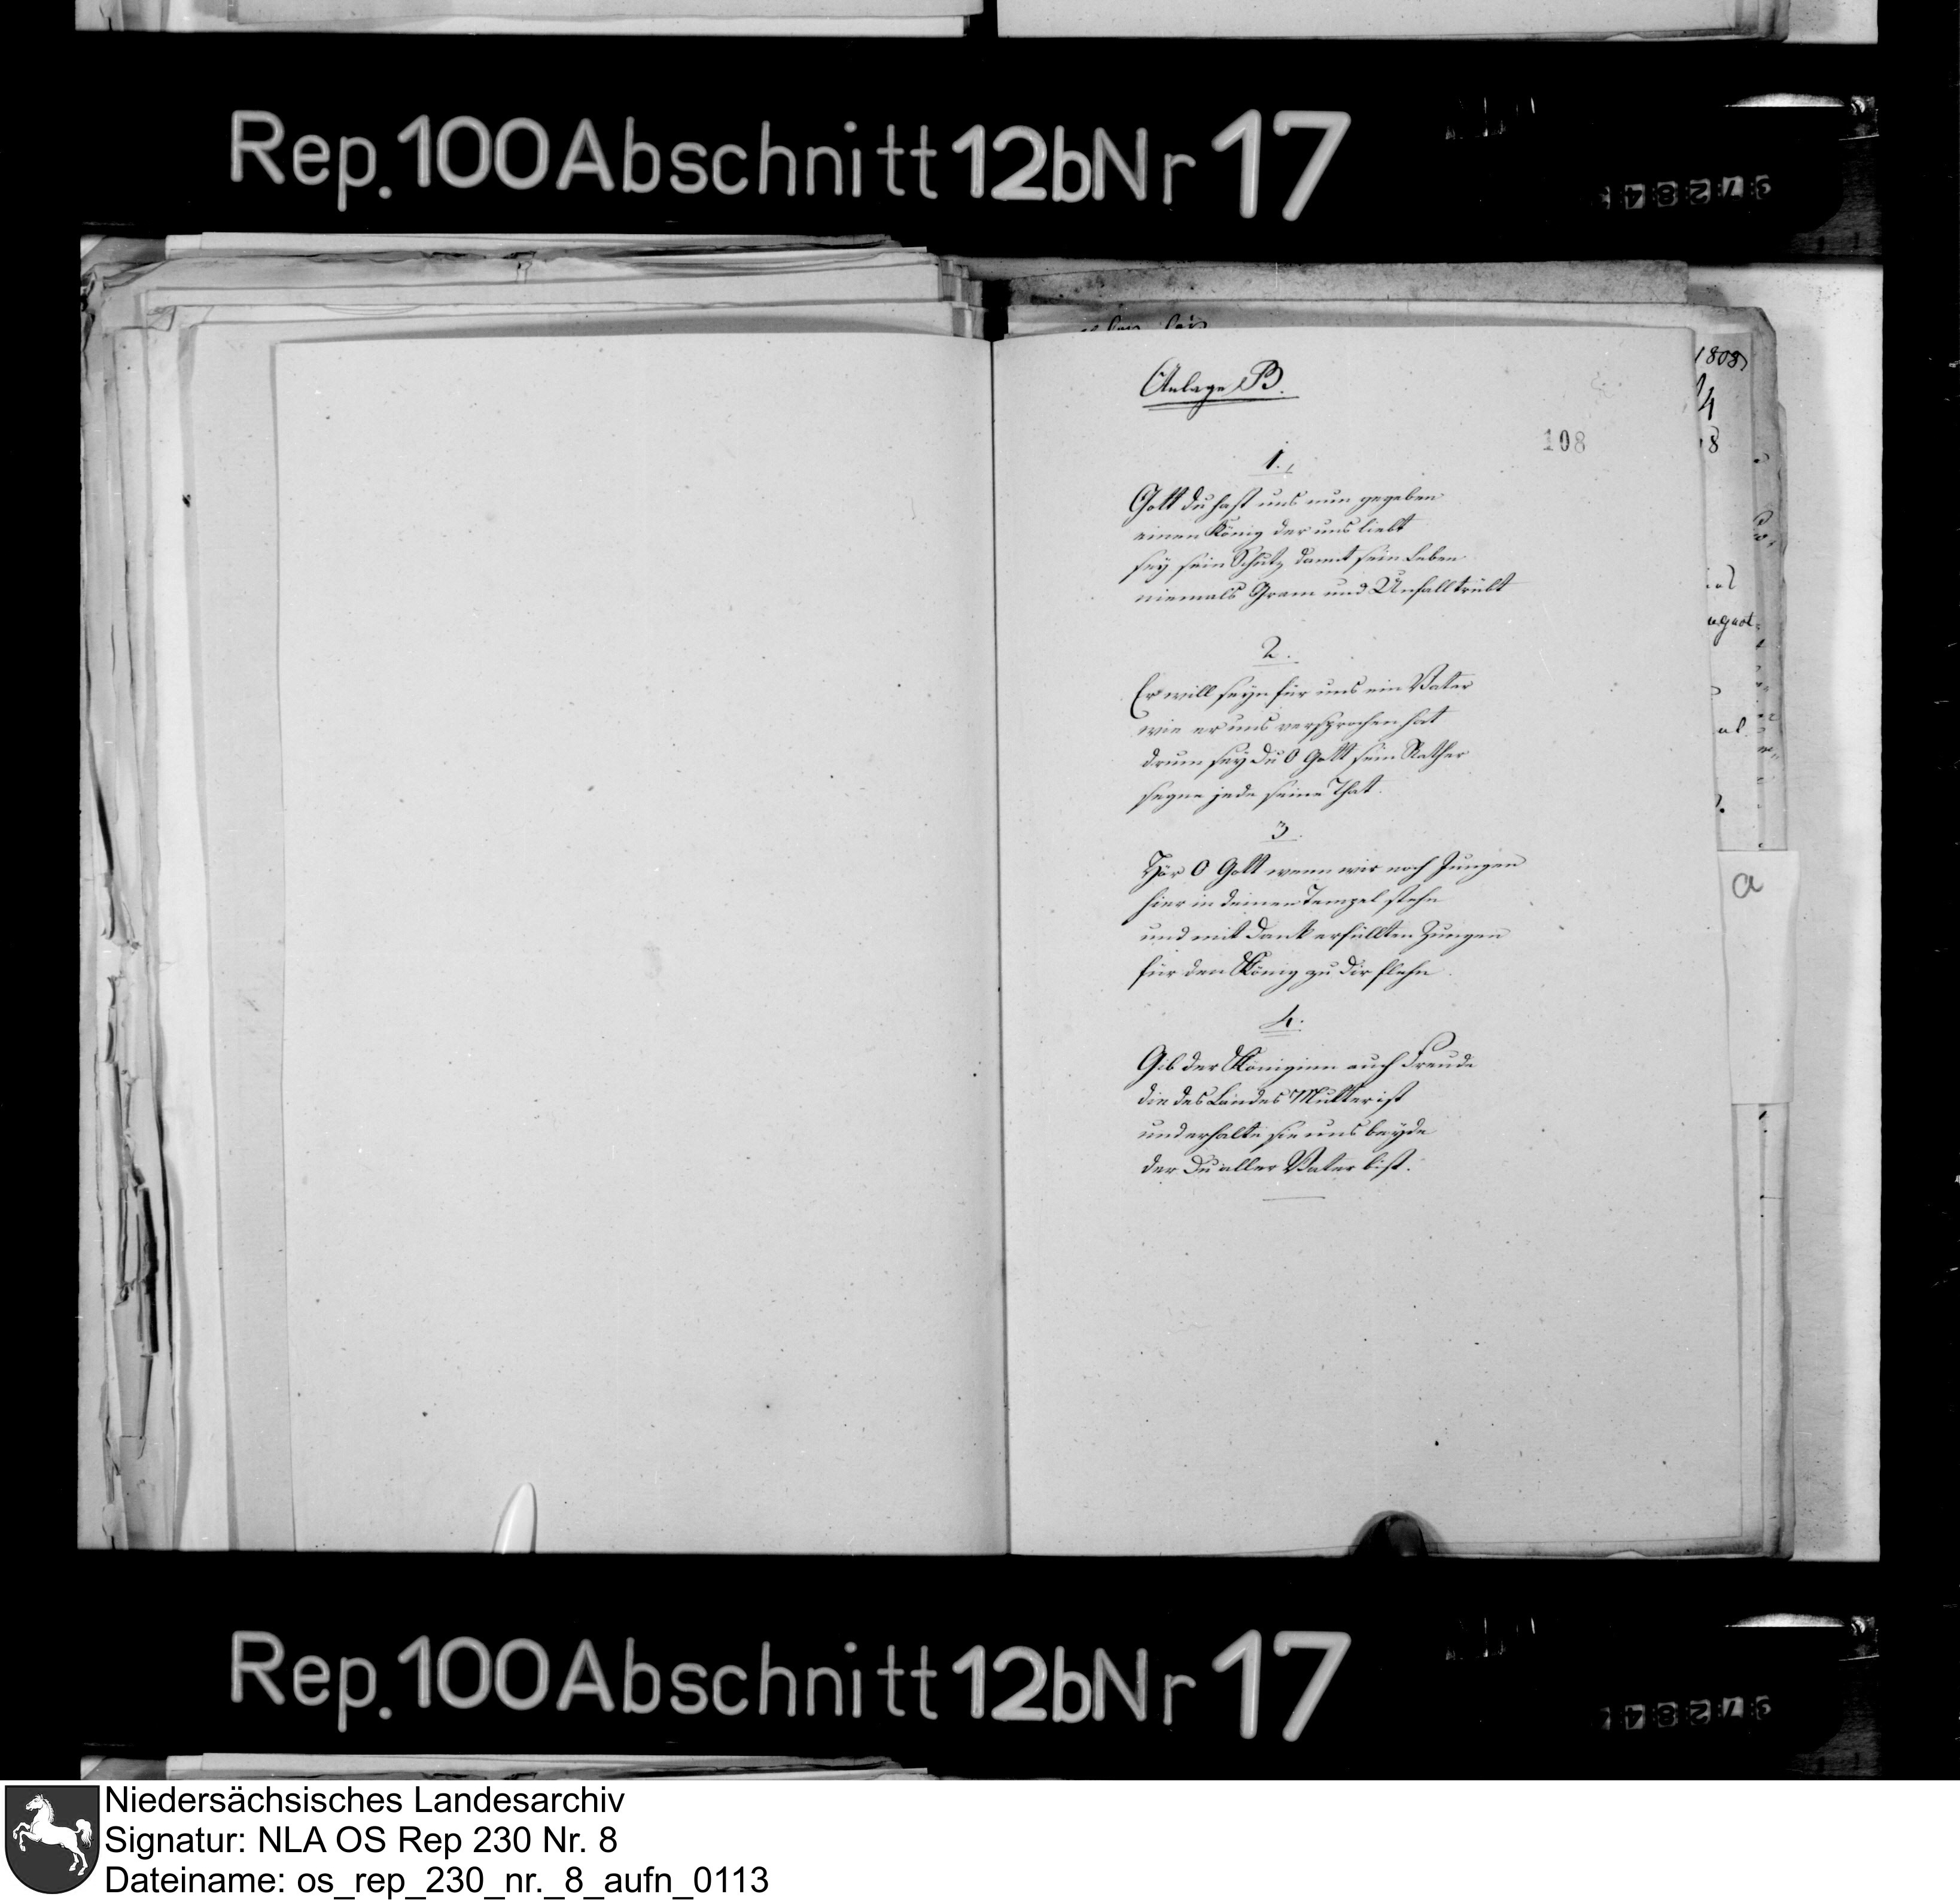 Rep. 100 Abschnitt 12b Nr 17
Anlage B.
108
1.
Gott du hast uns nun gegeben
einen König der uns liebt
sey sein Schutz damit sein Leben
niemals Gram und Unfall trübt
2.
Er will seyn für uns ein Vater
wie er uns versprochen hat
drum sey du O Gott sein Rather
segne jede seine That.
3.
Hör O Gott wenn wir noch Jungen
hier in deinen Tempel stehn
und mit Dank erfüllten Zungen
für den König zu dir flehn.
4.
Gib der Königinn auch Freude
die des Landes Mutter ist
und erhalte sie uns beyde
der du aller Vater bist.
1808
a
Rep. 100 Abschnitt 12b Nr 17
Niedersächsisches Landesarchiv
Signatur: NLA OS Rep 230 Nr. 8
Dateiname: os_rep_230_nr._8_aufn_0113